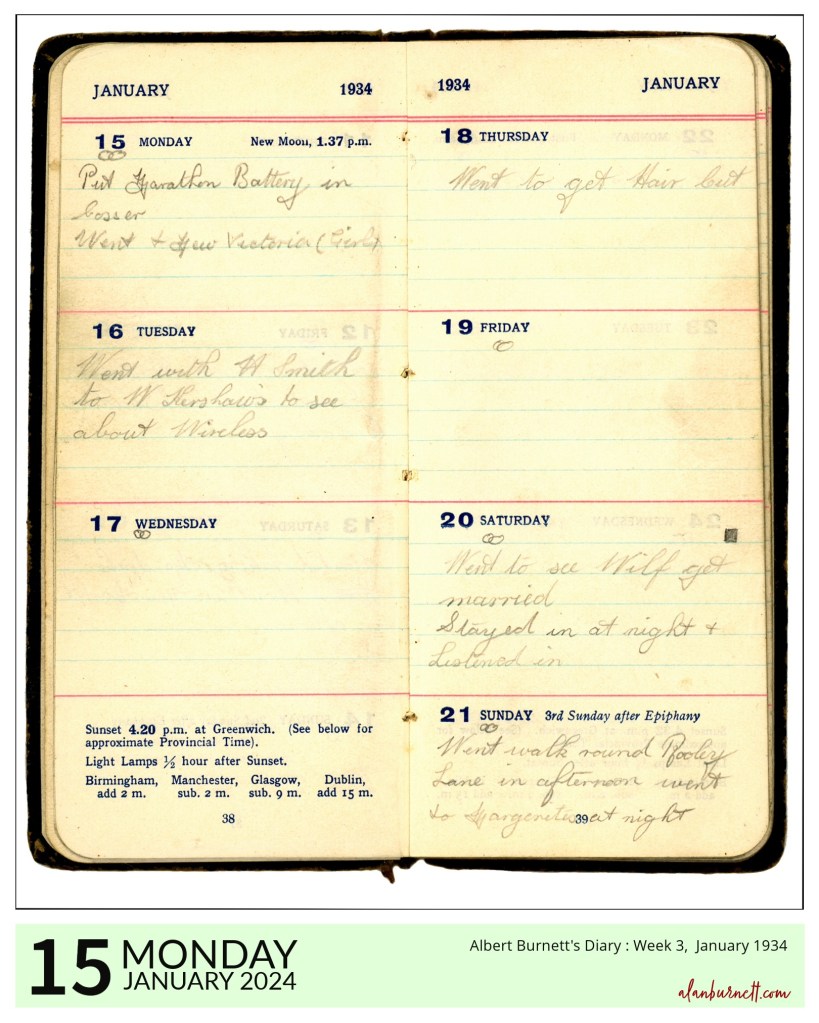 JANUARY 1934
15 MONDAY New Moon, 1.37 p.m.
Put Marathon Battery in
Went + New Victoria (Girls)
16 TUESDAY
Went with H Smith
to W Kershaw's to see
about Wireless
17 WEDNESDAY
Sunset 4.20 p.m. at Greenwich. (See below for
approximate Provincial Time).
Light Lamps ½ hour after Sunset.
Birmingham, Manchester, Glasgow, Dublin,
add 2 m. sub. 2 m. sub. 9 m. add 15 m.
38
1934 JANUARY
18 THURSDAY
Went to get Hair Cut
19 FRIDAY
20 SATURDAY
Went to see Wilf get
married
Stayed in at night +
Listened in
21 SUNDAY 3rd Sunday after Epiphany
Went walk round Rooley
Lane in afternoon went
to at night
39
15 MONDAY
JANUARY 2024
Albert Burnett's Diary : Week 3, January 1934
alanburnett.com